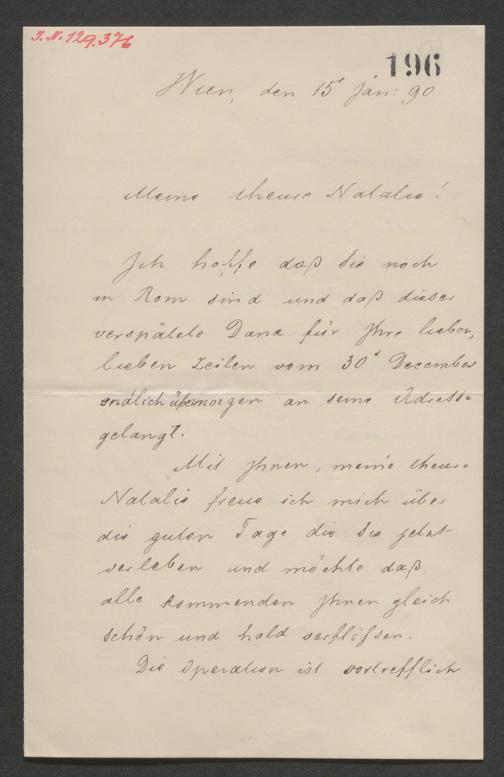 I.N. 129.376
196
Wien, den 15t Jän: 90.
Meine theure Natalie!
Ich hoffe daß Sie noch
in Rom sind und daß dieser
verspätete Dank für Ihre lieben,
lieben Zeilen vom 30t December
endlich übermorgen an seine Adresse
gelangt.
Mit Ihnen, meine theure
Natalie freue ich mich über
die guten Tage die Sie jetzt
verleben und möchte daß
alle kommenden Ihnen gleich
schön und hold verflößen.
Die Operation ist vortrefflich